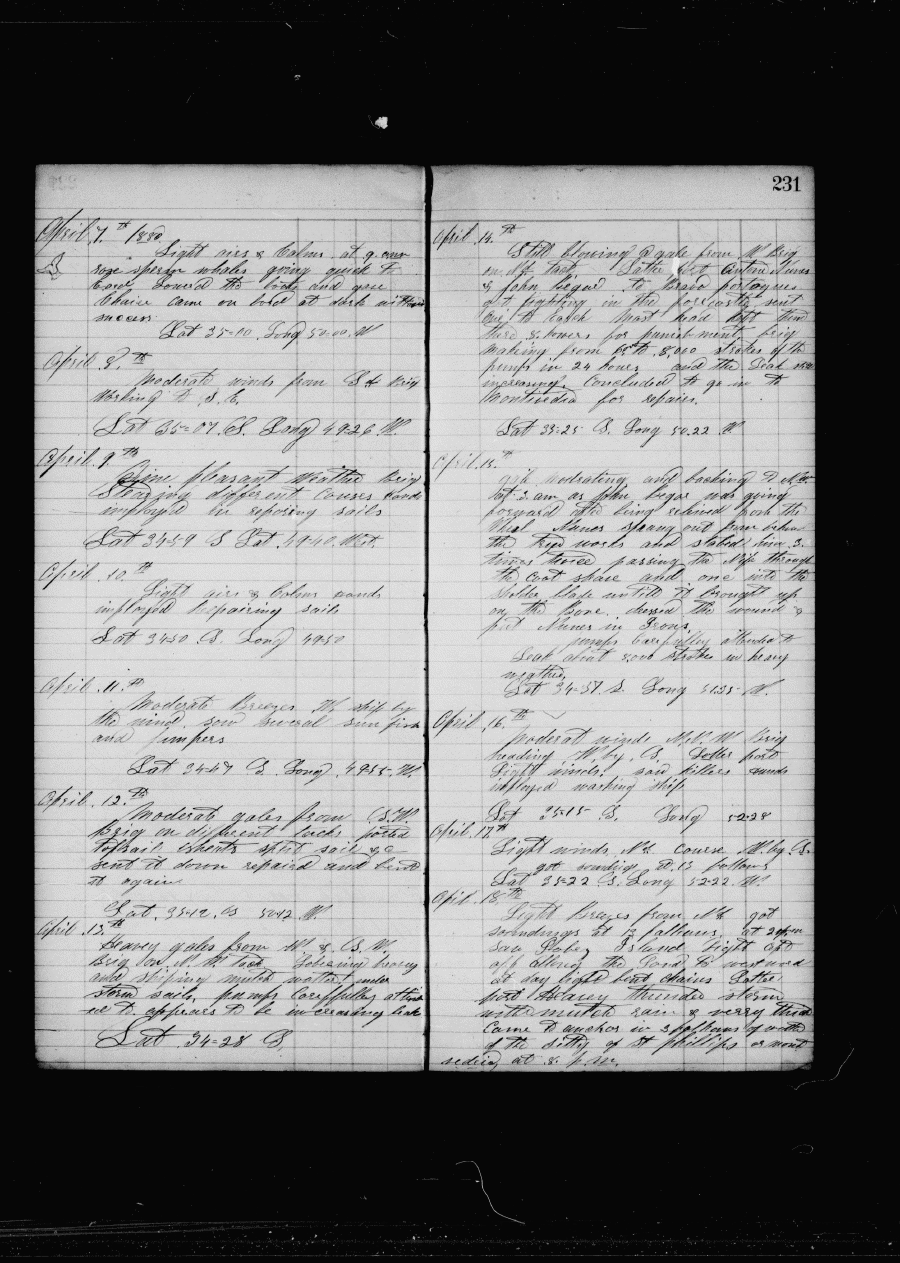 April 7.th 1880
Light airs & Calms at 9 am
rose sperm whales going quick to
lowered the boats and gave
Chaice came on bord at dark
Lat 35=00 Long 50-00 W
April 8.th
Moderate winds from S & Brig
Working to S. E.
Lat 35=07 S. Long 49.26 W.
April 9.th
Fine pleasant weather Brig
Stearing different Courses hands
imployed in reparing sails
Lat 34=59 S Lat 49-40 West.
April 10.th
Light airs & Calms hands
imployed Repairing sails
Lat 34-50 S. Long 49-50
April 11.th
Moderate Breezes W ship by
the wind. saw several sun fish
and jumpers
Lat 34-47 S. Long 49-55 W.
April 12.th
Moderate gales from S.W.
Brig on different tacks parted
topsail sheets split sail &c
sent it down repaired and bent
it again
Lat 35-12 S 50-12 W.
April 13.th
Heavey gales from W & S.W.
Brig on N. W. tack Laboring heavy
and shiping mutch watter under
storm sails, pumps Carefulley attend
ed to appears to be increasing leak
Lat 34-28 S
231
April 14.th
Still blowing a gale from W. Brig
on off tack Latter part Antone Nunes
& John begar to bravo portagues
got fighting in the forecastle sent
one to each Mast head kept them
there 8 howers for punishment. brig
making from to 8,000 strokes of the
pumps in 24 howers and the Leak
increasing. Concluded to go in to
Montivedia for repairs.
Lat 35-25 S. Long 50.22 W
April 15.th
gale moderating and backing to
at 3 am as John begar was going
forward after being relieved from the
Wheal Nunes sprang out from behind
the tryed works and stabed him 3
times twice passing the Nife through
the coat sleave and one into the
Sholder blade untill it brought up
on the Bone. dressed the wound &
put Nunes in Irons
pumps Carefulley attended to
Leak about 8,000 strokes in heavy
weather
Lat 34-57 S. Long 51.55 W.
April 16.th
Moderat winds N.N.W Brig
heading W. by S. Latter part
Light winds. saw killers hands
imployed washing ship
Lat 35-15 S. Long 52-28
April 17.th
Light winds. NE course W. by S.
got sounding at 13 fathoms
Lat 35=22 S. Long 52-22 W.
April 18.th
Light Breezes from NE got
soundings at 13 fathoms, at
saw Island Light
off along the Land to westward
at day light bent chains Latter
part Heavey thunder storm
with mutch rain & verry thick
Came to anchor in 3 fathoms of watter
of the sitty of St phillips or mont
vedieo at 8 p.m.